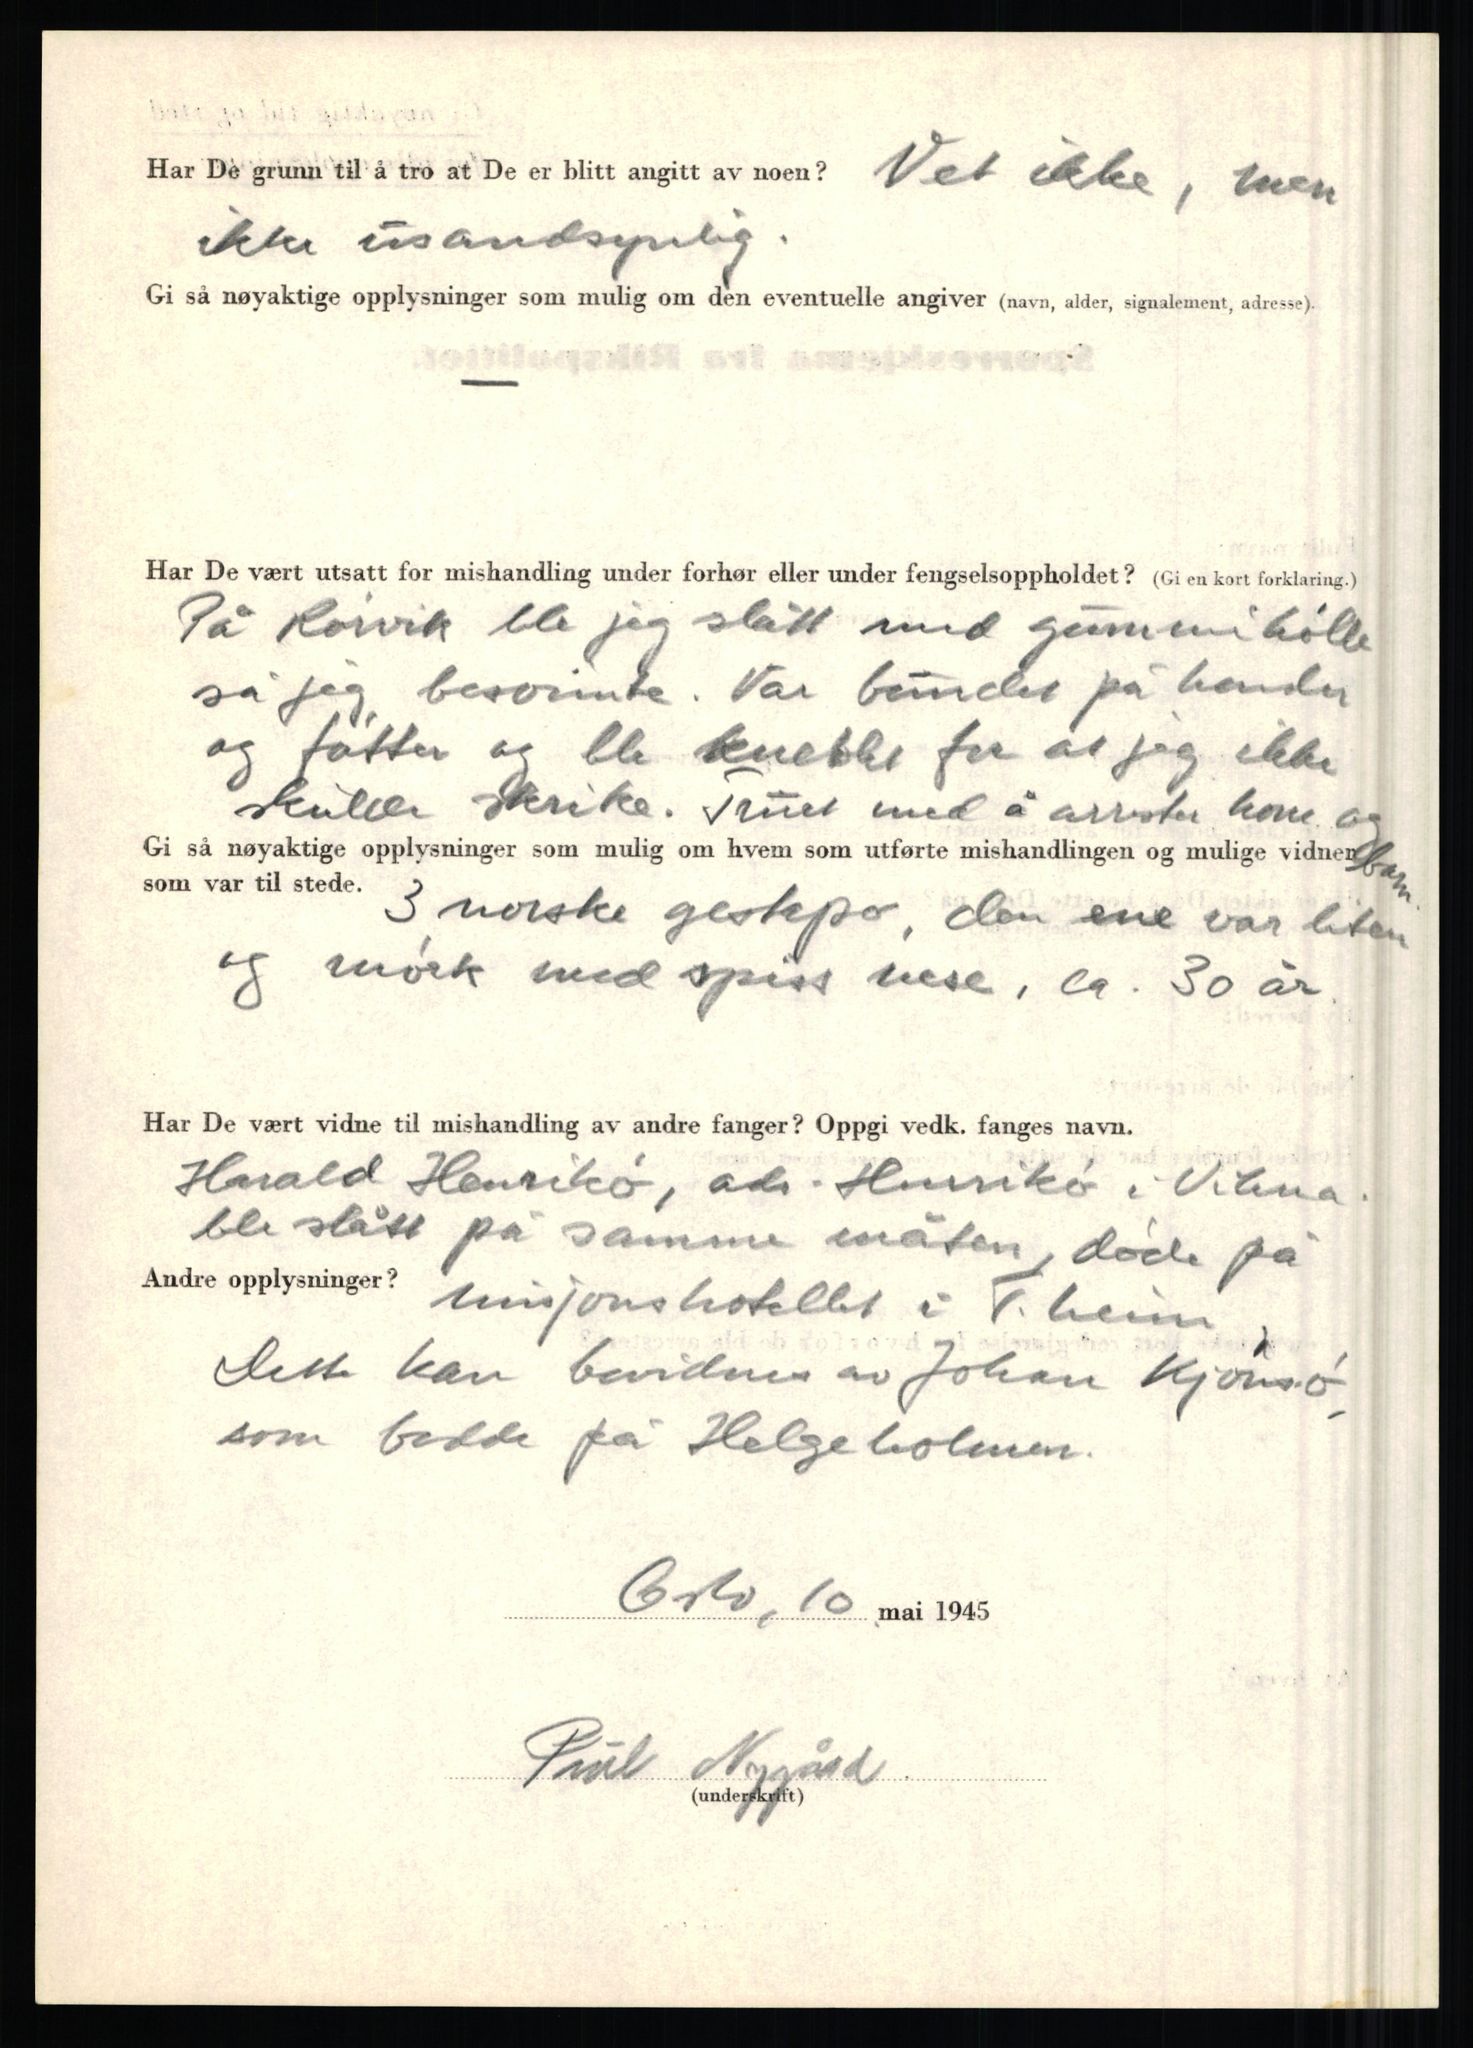 Har De grunn til å tro at De er blitt angitt av noen? Vet ikke, men
ikke usandsynlig.
Gi så nøyaktige opplysninger som mulig om den eventuelle angiver (navn, alder, signalement, adresse).
—
Har De vært utsatt for mishandling under forhør eller under fengselsoppholdet? (Gi en kort forklaring.)
På Rørvik ble jeg slått med gummikølle
så jeg besvimte. Var bundet på hender
og føtter og ble kneblet for at jeg ikke
skulde skrike. Truet med å arrester kone og
barn.
Gi så nøyaktige opplysninger som mulig om hvem som utførte mishandlingen og mulige vidner
som var til stede. 3 norske gestapo, den ene var liten
og mørk med spiss nese, ca. 30 år.
Har De vært vidne til mishandling av andre fanger? Oppgi vedk. fanges navn.
Harald Henrikø, adr. Henrikø i Vikna.
ble slått på samme måten, døde på
Andre opplysninger? misjonshotellet i T.heim,
Dette kan bevidnes av Johan Kjønsø,
som bodde på Helgeholmen.
Oslo, 10 mai 1945
Paul Nygård
(underskrift)